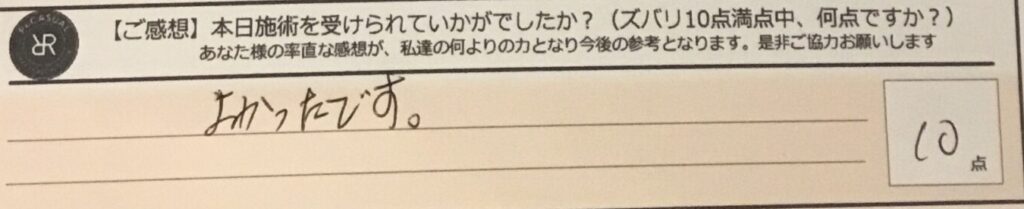 【ご感想】本日施術を受けられていかがでしたか？（ズバリ10点満点中、何点ですか？）
あなた様の率直な感想が、私達の何よりの力となり今後の参考となります。是非ご協力お願いします
よかったです。
10点